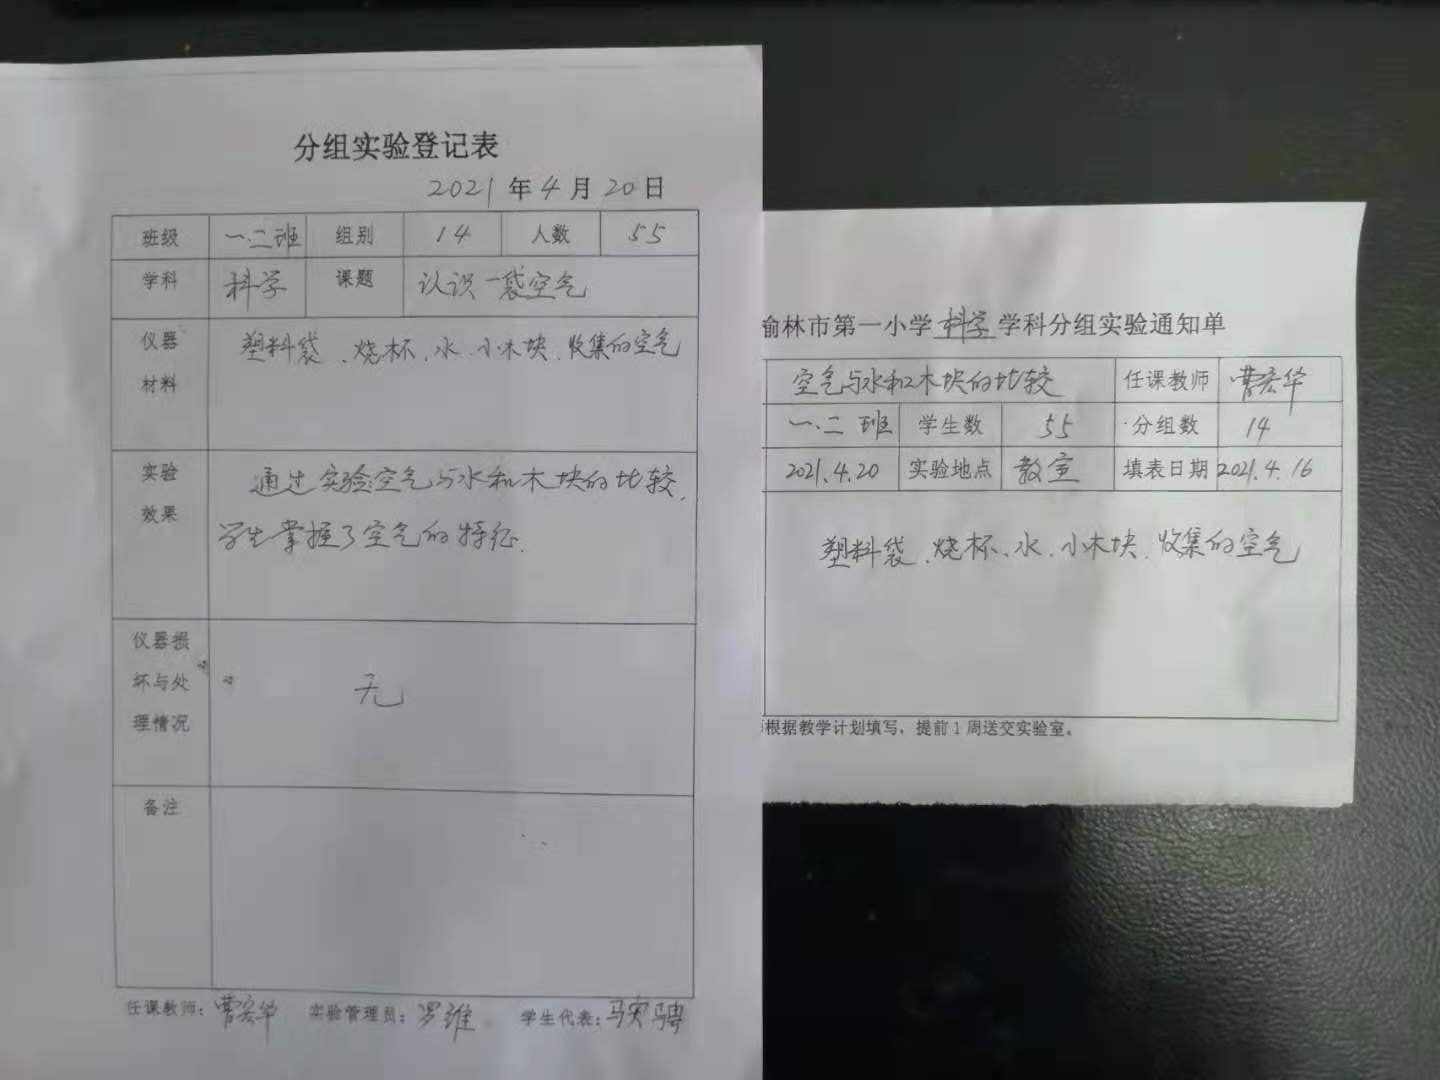 分组实验登记表
2021年4月20日
班级 一.二班 组别 14 人数 55
学科 科学 课题 认识一袋空气
仪器材料 塑料袋、烧杯、水、小木块、收集的空气
实验效果 通过实验空气与水和木块的比较,
学生掌握了空气的特征.
仪器损坏与处理情况 无
备注
任课教师:曹宏华 实验管理员:罗维 学生代表:
榆林市第一小学科学学科分组实验通知单
空气与水和木块的比较 任课教师 曹宏华
一.二班 学生数 55 分组数 14
2021.4.20 实验地点 教室 填表日期 2021.4.16
塑料袋、烧杯、水、小木块、收集的空气
根据教学计划填写,提前1周送交实验室。